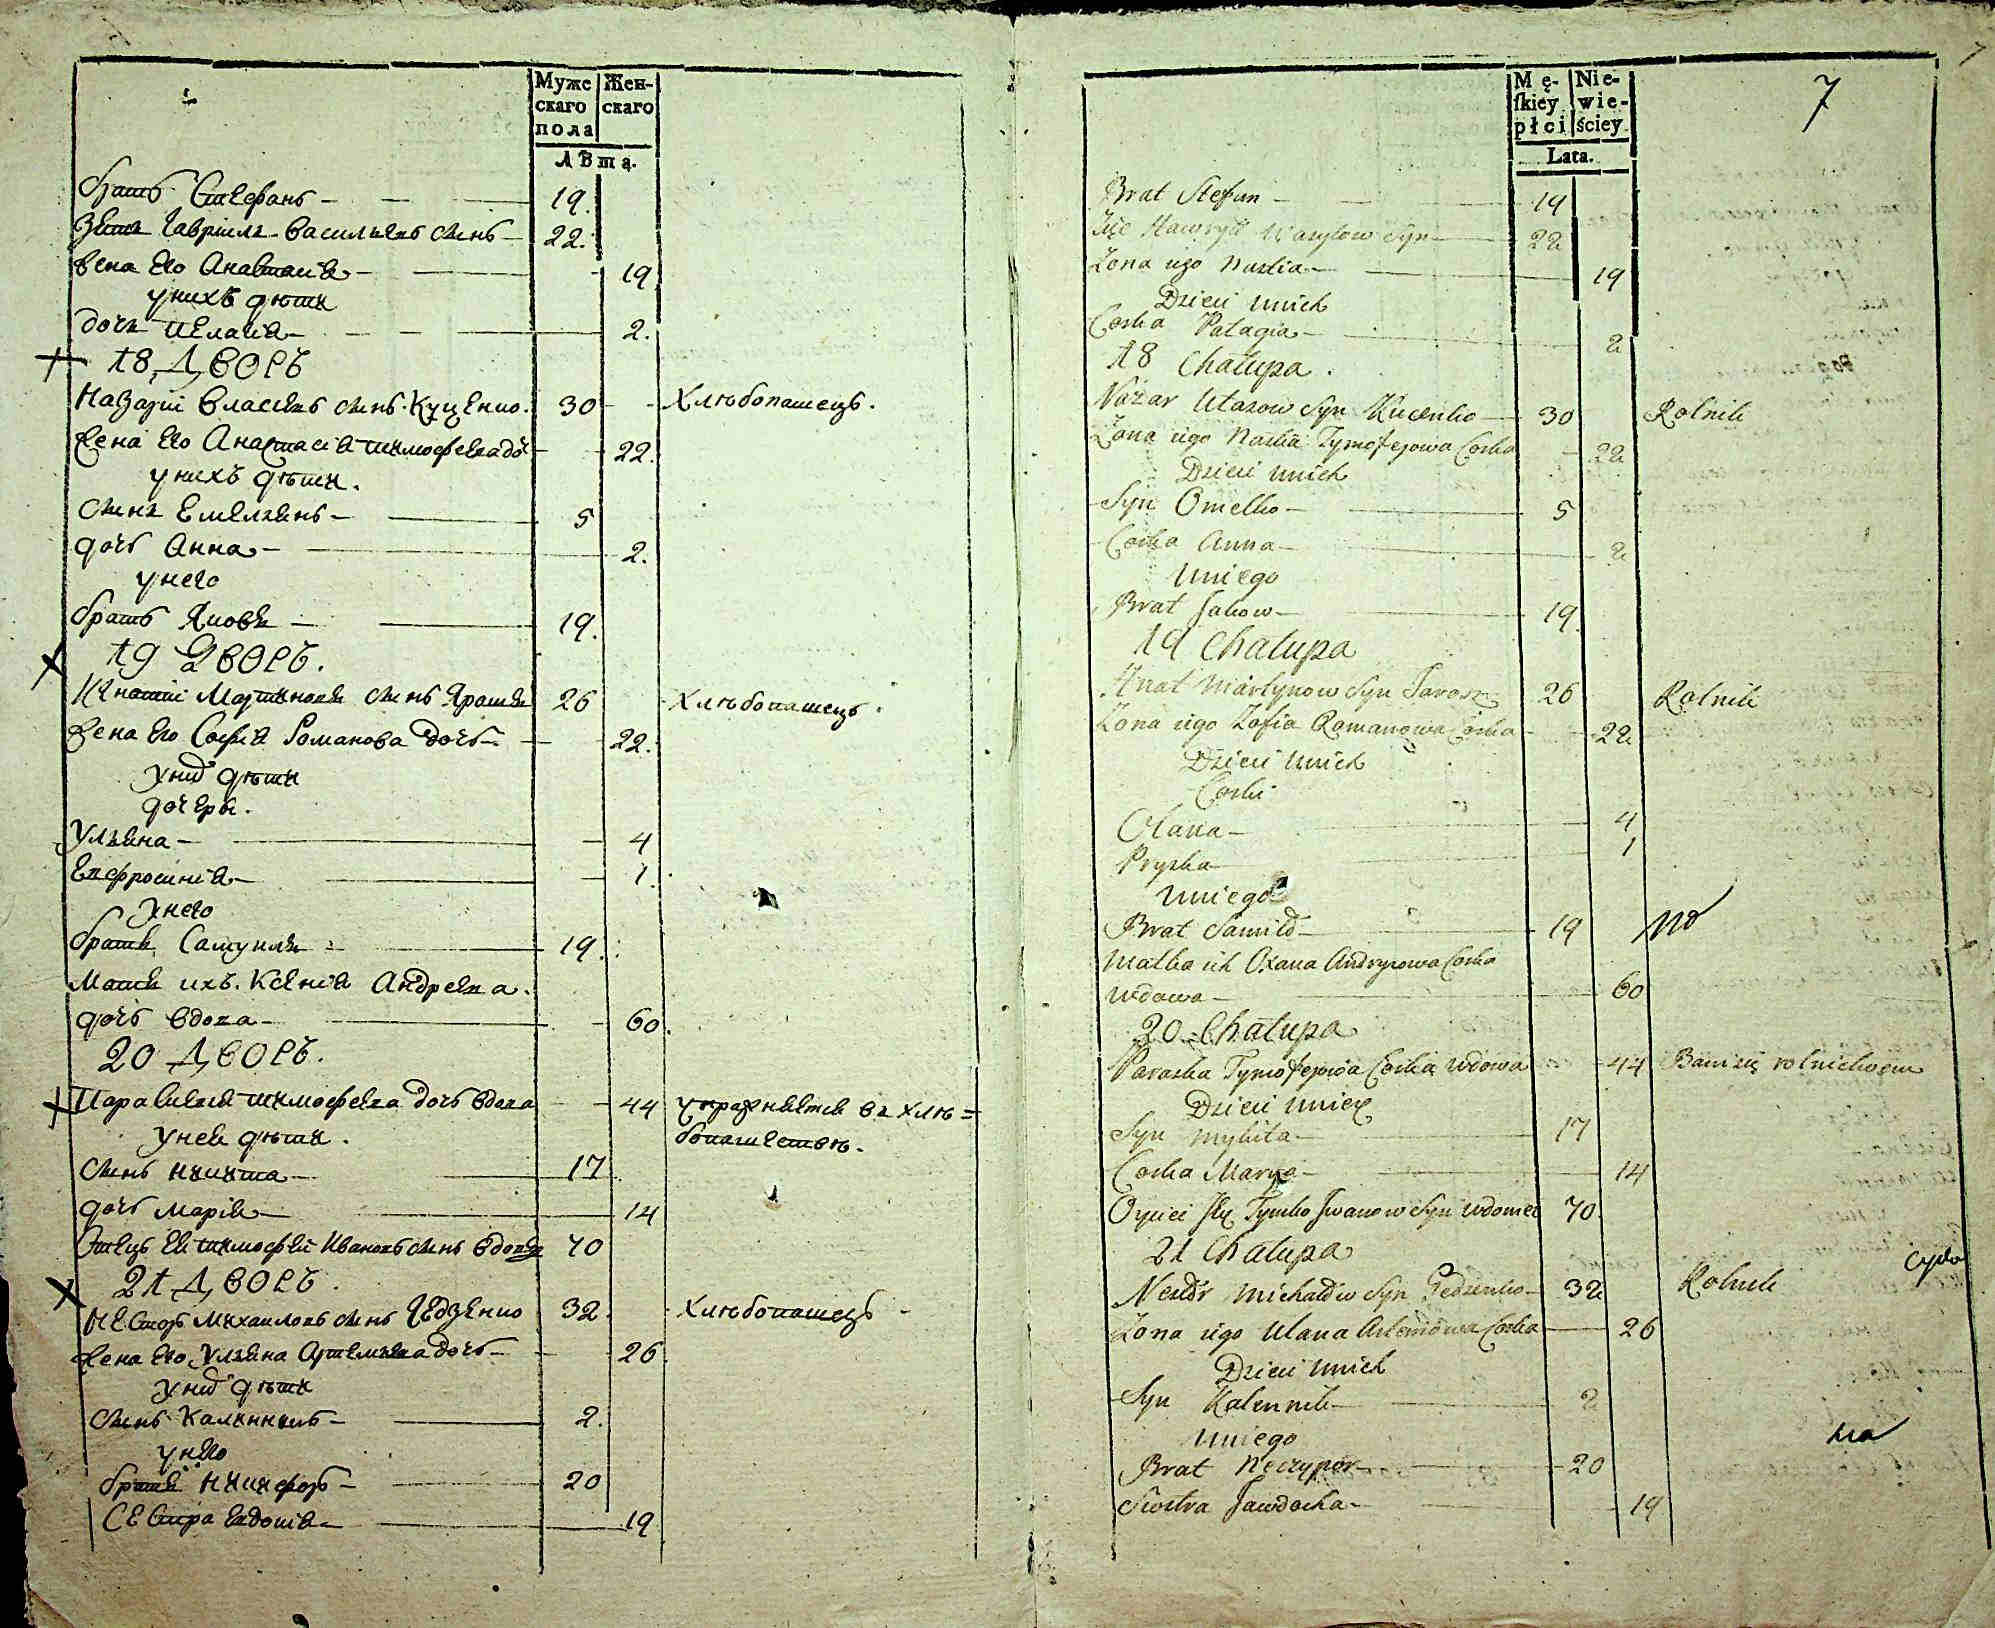 Муже
скаго
пола
Жен-
скаго
Лѣта.
братъ Стефанъ 19.
Зять Гавріилъ Васильевъ сынъ 22.
жена его Анастасія 19
у нихъ дѣти
дочь Пелагія 2.
18 ДВОРЪ
Назарій Власіевъ сынъ Куценко. 30 Хлѣбопашецъ.
жена его Анастасія Тимофеева дочь 22.
у нихъ дѣти.
сынъ Емельянъ 5
дочь Анна 2.
у него
братъ Яковъ 19.
19 ДВОРЪ.
Игнатій Мартиновъ сынъ 26 Хлѣбопашецъ.
жена его Софія Романова дочь 22.
у нихъ дѣти
дочеры.
Ульяна 4
Евфросинія 1.
у него
братъ Самуилъ 19.
Мать ихъ Ксенія Андреева
дочь вдова 60.
20 ДВОРЪ.
Параскевія Тимофеева дочь вдова 44 упражняется въ хлѣ=
бопашествѣ.
у ней дѣти.
сынъ Никита 17
дочь Марія 14
Отецъ ея Тимофей Ивановъ сынъ вдовецъ 70
21 ДВОРЪ.
Несторъ Михайловъ сынъ Гедзенко 32. Хлѣбопашецъ
жена его Ульяна Артемьева дочь 26.
у нихъ дѣти
сынъ Каленникъ 2.
у него
братъ Никифоръ 20
Сестра Евдокія 19
7
Mę-
skiey
płci
Nie-
wie-
ściey
Lata.
Brat Stefan 19
Zięć Hawryił Wasylow Syn 22
Zona iego Nastia 19
Dzieci unich
Corka Palagia 2
18 Chałupa.
Nazar Ułasow Syn Kucenko 30 Rolnik
Zona iego Nastia Tymofejowa Corka 22
Dzieci unich
Syn Omelko 5
Corka Anna 2
uniego
Brat Jakow 19
19 Chałupa
Hnat Martynow Syn 26 Rolnik
Zona iego Zofia Romanowa Corka 22
Dzieci unich
Corki
Olana 4
Pryska 1
uniego
Brat Samiło 19
Matka ich Oxana Andryiowa Corka
wdowa 60
20 Chałupa
Paraska Tymofejowa Corka wdowa 44 Bawi się rolnictwem
Dzieci uniey
Syn Mykita 17
Corka Marya 14
Oyciec Jey Tymko Jwanow Syn wdowiec 70.
21 Chałupa
Nestor Michałow Syn Gedzenko 32 Rolnik
Zona iego Ulana Artemowa Corka 26
Dzieci unich
Syn Kalennik 2
uniego
Brat Neczypor 20
Siostra Jawdocka 19